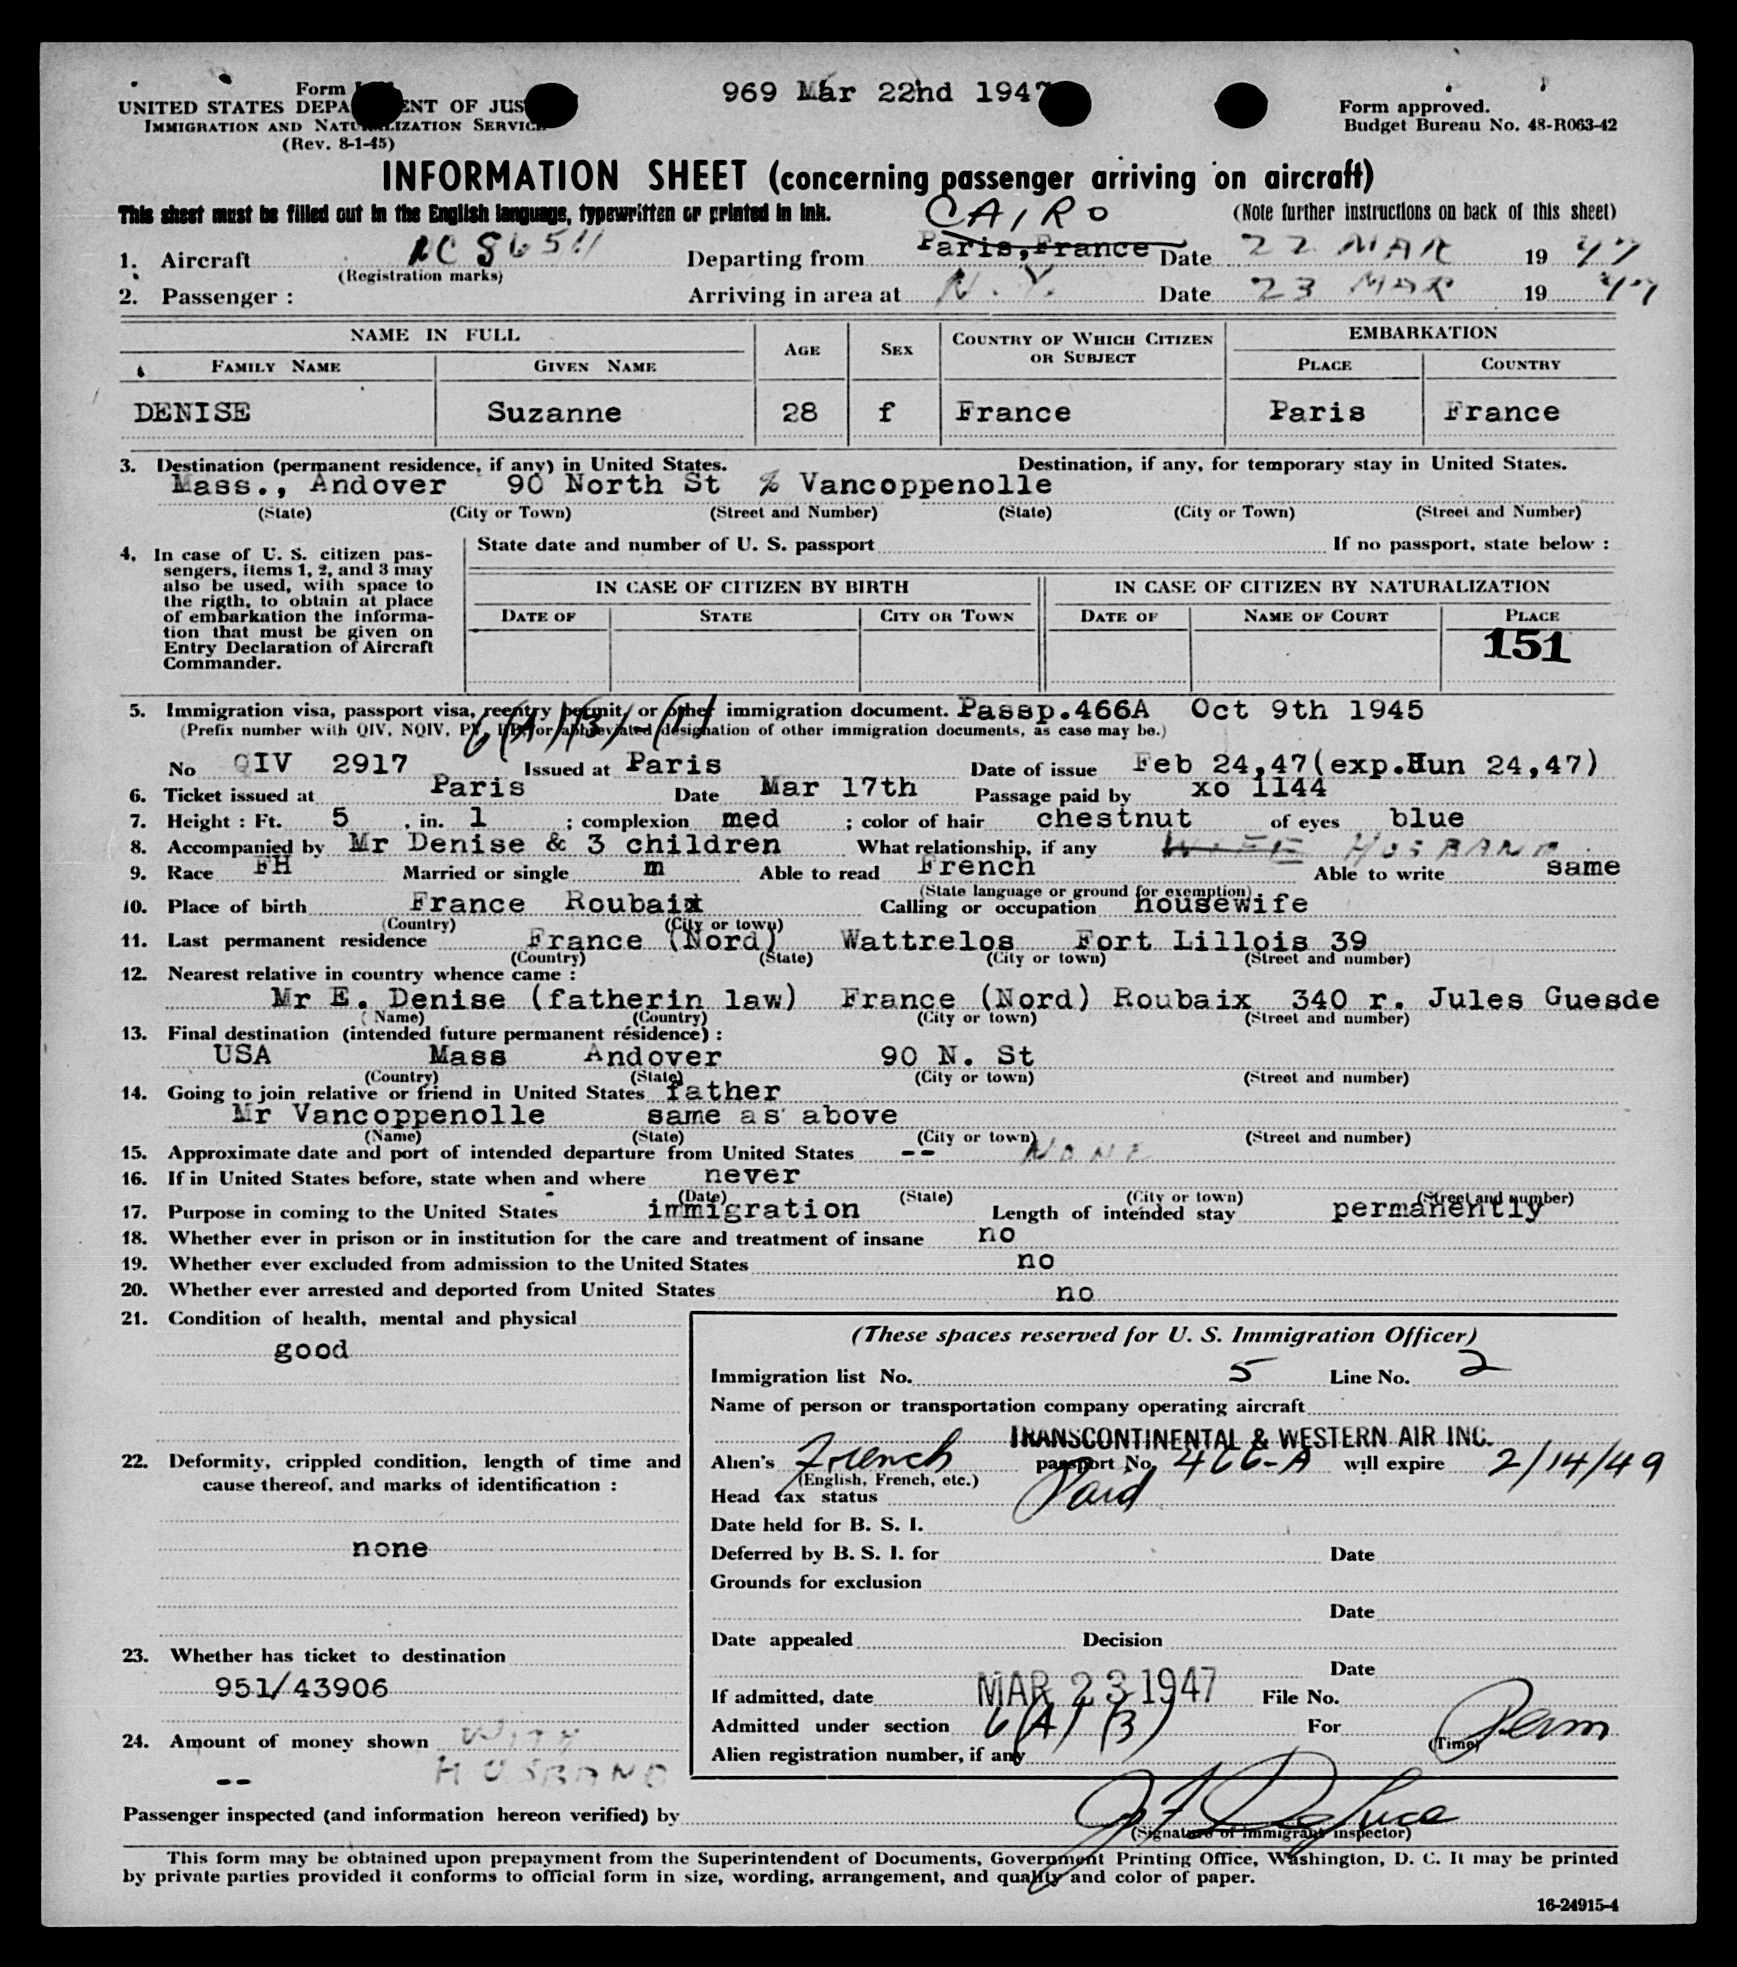 969 Mar 22nd 1947
Form
UNITED STATES DEPARTMENT OF JUSTICE
IMMIGRATION AND NATURALIZATION SERVICE
(Rev. 8-1-45)
Form approved.
Budget Bureau No. 48-R063-42
INFORMATION SHEET (concerning passenger arriving on aircraft)
This sheet must be filled out in the English language, typewritten or printed in ink.
(Note further instructions on back of this sheet)
CAIRO
1. Aircraft NC 86511 Departing from Paris,France Date 22 MAR 1947
(Registration marks)
2. Passenger : Arriving in area at N.Y. Date 23 MAR 1947
NAME IN FULL AGE SEX COUNTRY OF WHICH CITIZEN OR SUBJECT EMBARKATION
FAMILY NAME GIVEN NAME PLACE COUNTRY
DENISE Suzanne 28 f France Paris France
3. Destination (permanent residence, if any) in United States. Destination, if any, for temporary stay in United States.
Mass., Andover 90 North St % Vancoppenolle
(State) (City or Town) (Street and Number) (State) (City or Town) (Street and Number)
4. In case of U. S. citizen pas-
sengers, items 1, 2, and 3 may
also be used, with space to
the rigth, to obtain at place
of embarkation the informa-
tion that must be given on
Entry Declaration of Aircraft
Commander.
State date and number of U. S. passport If no passport, state below :
IN CASE OF CITIZEN BY BIRTH IN CASE OF CITIZEN BY NATURALIZATION
DATE OF STATE CITY OR TOWN DATE OF NAME OF COURT PLACE
151
5. Immigration visa, passport visa, reentry permit, or other immigration document. Passp.466A Oct 9th 1945
(Prefix number with QIV, NQIV, PV, RP, or abbreviated designation of other immigration documents, as case may be.)
No QIV 2917 Issued at Paris Date of issue Feb 24,47(exp.Hun 24,47)
6. Ticket issued at Paris Date Mar 17th Passage paid by xo 1144
7. Height : Ft. 5 , in. 1 ; complexion med ; color of hair chestnut of eyes blue
8. Accompanied by Mr Denise & 3 children What relationship, if any WIFE HUSBAND
9. Race FH Married or single m Able to read French Able to write same
(State language or ground for exemption)
10. Place of birth France Roubaix Calling or occupation housewife
(Country) (City or town)
11. Last permanent residence France (Nord) Wattrelos Fort Lillois 39
(Country) (State) (City or town) (Street and number)
12. Nearest relative in country whence came :
Mr E. Denise (fatherin law) France (Nord) Roubaix 340 r. Jules Guesde
(Name) (Country) (City or town) (Street and number)
13. Final destination (intended future permanent résidence) :
USA Mass Andover 90 N. St
(Country) (State) (City or town) (Street and number)
14. Going to join relative or friend in United States father
Mr Vancoppenolle same as above
(Name) (State) (City or town) (Street and number)
15. Approximate date and port of intended departure from United States -- NONE
16. If in United States before, state when and where never
(Date) (State) (City or town) (Street and number)
17. Purpose in coming to the United States immigration Length of intended stay permanently
18. Whether ever in prison or in institution for the care and treatment of insane no
19. Whether ever excluded from admission to the United States no
20. Whether ever arrested and deported from United States no
21. Condition of health, mental and physical
good
22. Deformity, crippled condition, length of time and
cause thereof, and marks of identification :
none
23. Whether has ticket to destination
951/43906
24. Amount of money shown WITH
-- HUSBAND
(These spaces reserved for U. S. Immigration Officer)
Immigration list No. 5 Line No. 2
Name of person or transportation company operating aircraft
TRANSCONTINENTAL & WESTERN AIR INC.
Alien's French passport No. 466-A will expire 2/14/49
(English, French, etc.)
Head tax status Paid
Date held for B. S. I.
Deferred by B. S. I. for Date
Grounds for exclusion
Date
Date appealed Decision
Date
If admitted, date MAR 23 1947 File No.
Admitted under section 6(A)(3) For Perm
(Time)
Alien registration number, if any
Passenger inspected (and information hereon verified) by
(Signature of immigrant inspector)
This form may be obtained upon prepayment from the Superintendent of Documents, Government Printing Office, Washington, D. C. It may be printed
by private parties provided it conforms to official form in size, wording, arrangement, and quality and color of paper.
16-24915-4